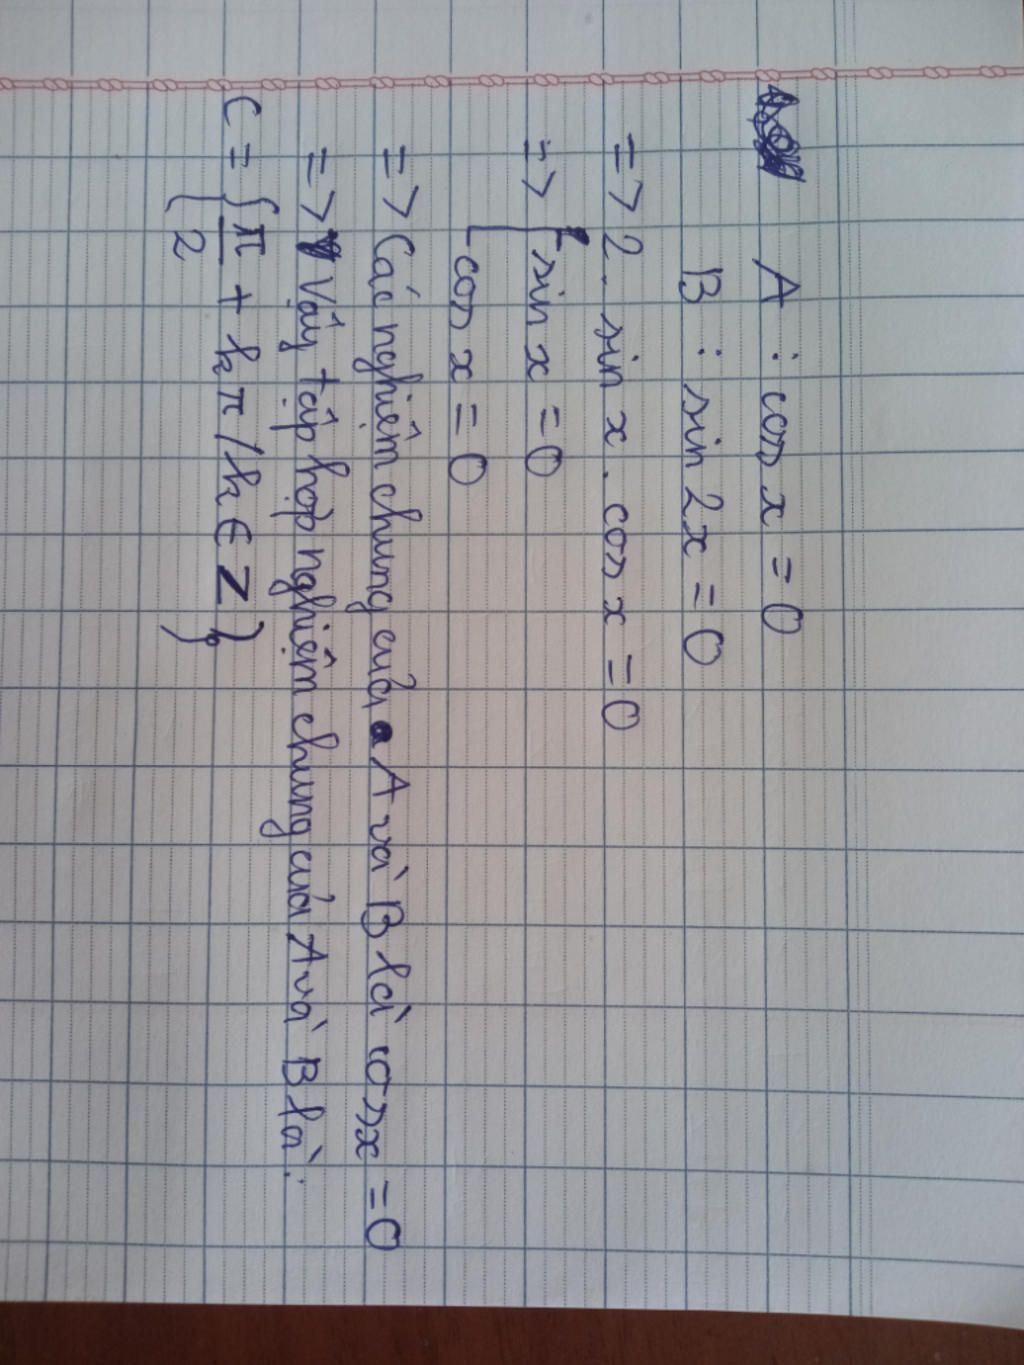 A : cos x = 0
B : sin 2x = 0
=> 2. sin x . cos x = 0
=> [ sin x = 0
cos x = 0
=> Các nghiệm chung của A và B là cosx = 0
=> Vậy tập hợp nghiệm chung của A và B là:
C = { π/2 + kπ / k ∈ Z }